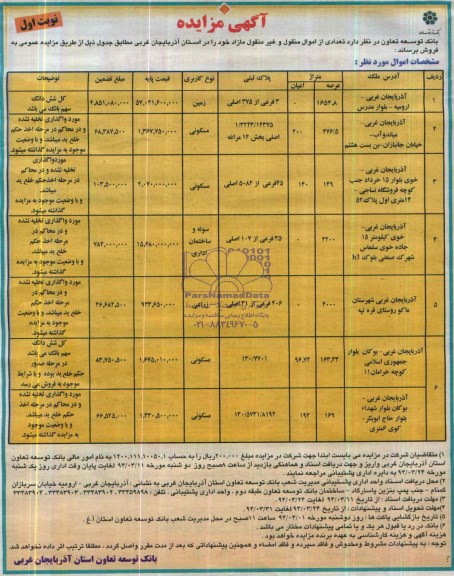 آگهی مزایده
نوبت اول
بانک توسعه تعاون در نظر دارد تعدادی از اموال منقول و غیر منقول مازاد خود را در استان آذربایجان غربی مطابق جدول ذیل از طریق مزایده عمومی به
فروش برساند :
مشخصات اموال مورد نظر :
ردیف آدرس ملک متراژ عرصه اعیان پلاک ثبتی نوع کاربری قیمت پایه مبلغ تضمین توضیحات
۱ آذربایجان غربی - ارومیه - بلوار مدرس ۱۶۵۳،۸ ۰ ۳ فرعی از ۳۷۵ اصلی زمین ۵۷،۰۲۱،۶۰۰،۰۰۰ ۲،۸۵۱،۰۸۰،۰۰۰ کل شش دانگ سهم بانک می باشد
۲ آذربایجان غربی - میاندوآب- خیابان جانبازان-بن بست هشتم ۲۷۶/۵ ۲۰۰ اصلی بخش ۱۴ مراغه مسکونی ۱،۳۶۷،۷۵۰،۰۰۰ ۶۸،۳۸۷،۵۰۰ مورد واگذاری تخلیه نشده و در محاکم در مرحله اخذ حکم خلع ید میباشد. و با وضعیت موجود به مزایده گذاشته میشود.
۳ آذربایجان غربی - خوی بلوار ۱۵ خرداد جنب کوچه فروشگاه نساجی - ۱۴متری اول پلاک ۵۲ ۱۴۹ ۱۴۰ ۲۵فرعی از ۵۰۸۲ اصلی مسکونی ۲،۰۷۰،۰۰۰،۰۰۰ ۱۰۳،۵۰۰،۰۰۰ مورد واگذاری تخلیه نشده و در محاکم در مرحله اخذحکم خلع ید میباشد. و با وضعیت موجود به مزایده گذاشته میشود.
۴ آذربایجان غربی - خوی کیلومتر ۱۵ جاده خوی سلماس شهرک صنعتی بلوک b۶ ۴۲۰۰ ۳۵ فرعی از ۱۰۷ اصلی سوله و ساختمان اداری ۱۵،۶۸۰،۰۰۰،۰۰۰ ۷۸۴،۰۰۰،۰۰۰ مورد واگذاری تخلیه نشده و در محاکم در مرحله اخذ حکم خلع ید میباشد. و با وضعیت موجود به مزایده گذاشته میشود.
۵ آذربایجان غربی شهرستان ماکو روستای قره تپه ۴۰۰۰ ۰ ۲۰۶ فرعی از ۳۱ اصلی زراعی ۹۳۳،۶۵۰،۰۰۰ ۴۶،۶۸۲،۵۰۰ مورد واگذاری تخلیه نشده و در محاکم در مرحله اخذ حکم خلع ید میباشد. و با وضعیت موجود به مزایده گذاشته میشود.
۶ آذربایجان غربی - بوکان بلوار جمهوری اسلامی کوچه خرامان۱۱ ۱۶۳،۳۳ ۹۶،۷۲ ۱۳۰/۷۷۰۱ مسکونی ۱،۶۷۵،۰۱۰،۰۰۰ ۸۳،۷۵۰،۵۰۰ کل شش دانگ سهم بانک می باشد در مرحله صدور حکم خلع ید بوده و با شرایط موجود به فروش می رسد
آذربایجان غربی - بوکان بلوار شهداء بلوار حاج ابوبکر - کوی ۶متری ۱۶۹ ۱۹۲ ۱۲۰/۵۷۳۱/۸۱۹۲ مسکونی ۱،۳۳۰،۵۰۰،۰۰۰ ۶۶،۵۲۵،۰۰۰ مورد واگذاری تخلیه نشده و در محاکم در مرحله اخذ حکم خلع ید میباشد. و با وضعیت موجود به مزایده گذاشته میشود.
ParsNamadData
پایگاه اطلاع رسانی مناقصه و مزایده
۰۲۱-۸۸۳۴۹۶۷۰-۵
۱) متقاضیان شرکت در مزایده می بایست ابتدا جهت شرکت در مزایده مبلغ ۲۰۰،۰۰۰ ریال را به حساب ۱۲۰۰،۱۱۱،۱۰۰۵۰،۱ به نام امور مالی بانک توسعه تعاون
استان آذربایجان غربی واریز و جهت دریافت اسناد و هماهنگی بازدید از ساعت ۸صبح روز دو شنبه مورخه ۹۴/۰۳/۱۱ لغایت پایان وقت اداری روز یک شنبه
مورخه ۹۴/۰۳/۲۴ به دایره اداری و پشتیبانی مراجعه نمایند.
۲) محل دریافت اسناد واحد اداری پشتیبانی مدیریت شعب بانک توسعه تعاون استان آذربایجان غربی به نشانی : آذربایجان غربی - ارومیه خیابان سربازان
گمنام - جنب پمپ بنزین پاسارگاد - ساختمان بانک توسعه تعاون طبقه دوم - واحد اداری پشتیبانی
۶) بانک در رد یا قبول هر یک و یا تمامی پیشنهادات مختار می باشد .
هزینه آگهی و هزینه کارشناسی به عهده برنده مزایده خواهد بود.
توجه : به پیشنهادات مشروط ومخدوش و فاقد سپرده و فاقد امضاء و همچنین پیشنهاداتی که بعد از مدت مقرر واصل گردد ، مطلقا ترتیب اثر داده نخواهد شد.
بانک توسعه تعاون استان آذربایجان غربی